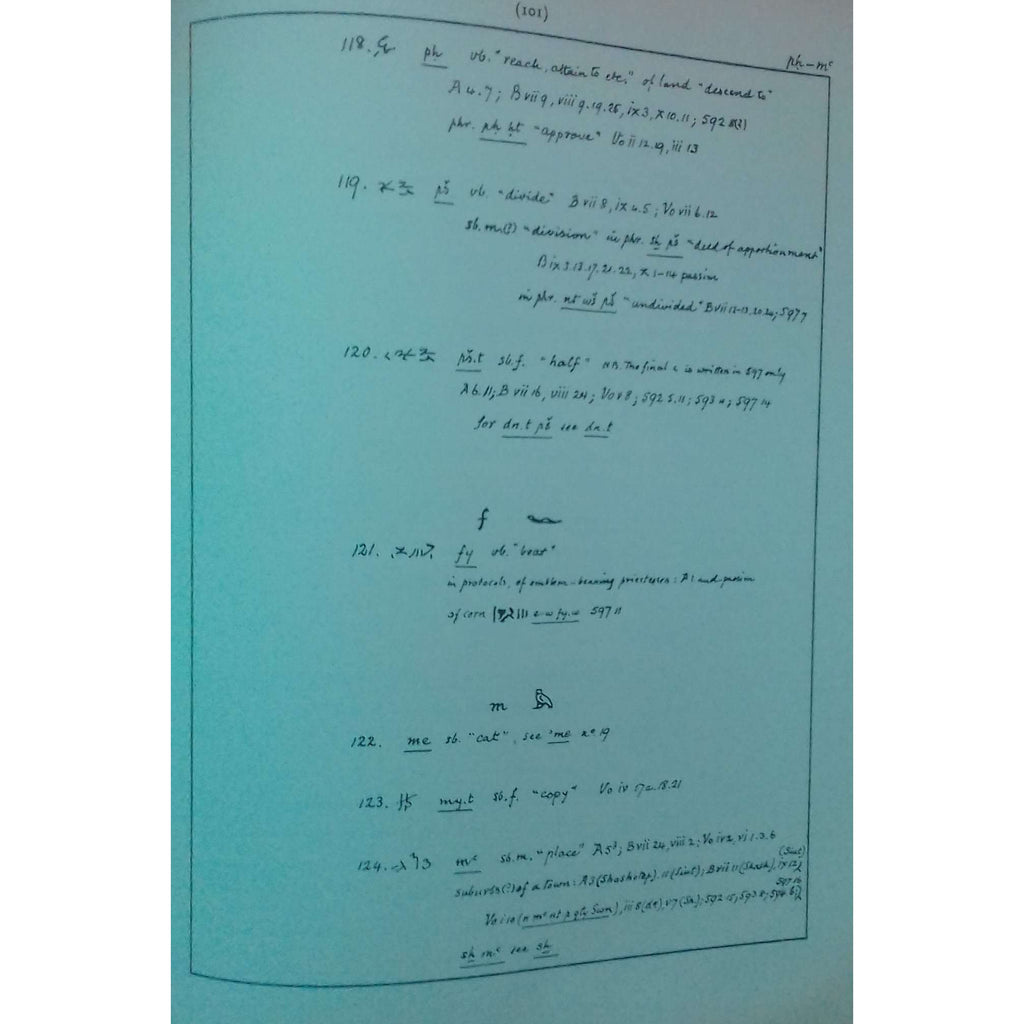 (101)
pḥ – mꜥ
118. pḥ vb. "reach, attain to etc." of land "descend to"
A 4.7; B vii 9, viii 9.19.25, ix 3, x 10.11; 592
phr. pḥ ḥt "approve" Vo ii 12.19, iii 13
119. pš vb. "divide" B vii 8, ix 4.5; Vo vii 6.12
sb. m.(?) "division" in phr. sẖ pš "deed of apportionment"
B ix 3.13.17.21.22, x 1–14 passim
in phr. nt wš pš "undivided" B vii 12-13.20.24; 597 7
120. pš.t sb.f. "half" N.B. The final is written in 597 only
A 6.11; B vii 16, viii 24; Vo v 8; 592 5.11; 593 4; 597 14
for dn.t pš see dn.t
f
121. fy vb. "bear"
in protocols, of emblem-bearing priestesses: A 1 and passim
of corn e-w fy.w 597 11
m
122. me sb. "cat", see ꜣme no 19
123. my.t sb.f. "copy" Vo iv 17a.18.21
124. mꜥ sb.m. "place" A 5³; B vii 24, viii 2; Vo iv 2, vi 1.3.6
suburbs(?) of a town: A 3 (Shashotep).10 (Siut); B vii 11 (Shash), ix 12 (Siut)
Vo i 10 (n mꜥ nt p qty Swn), iii 8 (do), v 7 (Sh); 592 15; 593 8; 597 16
sẖ mꜥ see sẖ